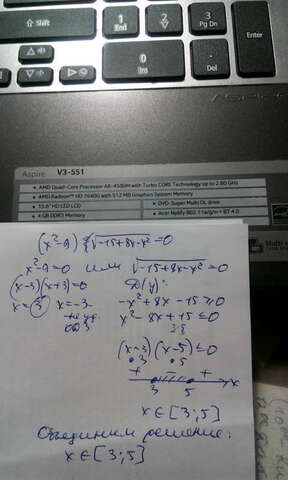 Shift
1 End
2
3 Pg Dn
Enter
0 Ins
. Del
ASPIRE
Aspire V3-551
AMD Quad-Core Processor A8-4500M with Turbo CORE Technology up to 2.80 GHz
AMD Radeon™ HD 7640G with 512 MB Graphics System Memory
15.6" HD LED LCD
DVD-Super Multi DL drive
4 GB DDR3 Memory
Acer Nplify 802.11a/g/n + BT 4.0
(x²-9) √-15+8x-x² = 0
x²-9=0 или √-15+8x-x² = 0
(x-3)(x+3)=0 D(y):
x=3 x=-3 -x²+8x-15≥0
не уд. x²-8x+15≤0
ОДЗ 3;5
(x-3)(x-5)≤0
.3 .5
+ - + x
3 5
x∈[3;5]
Объединим решение:
x∈[3;5]